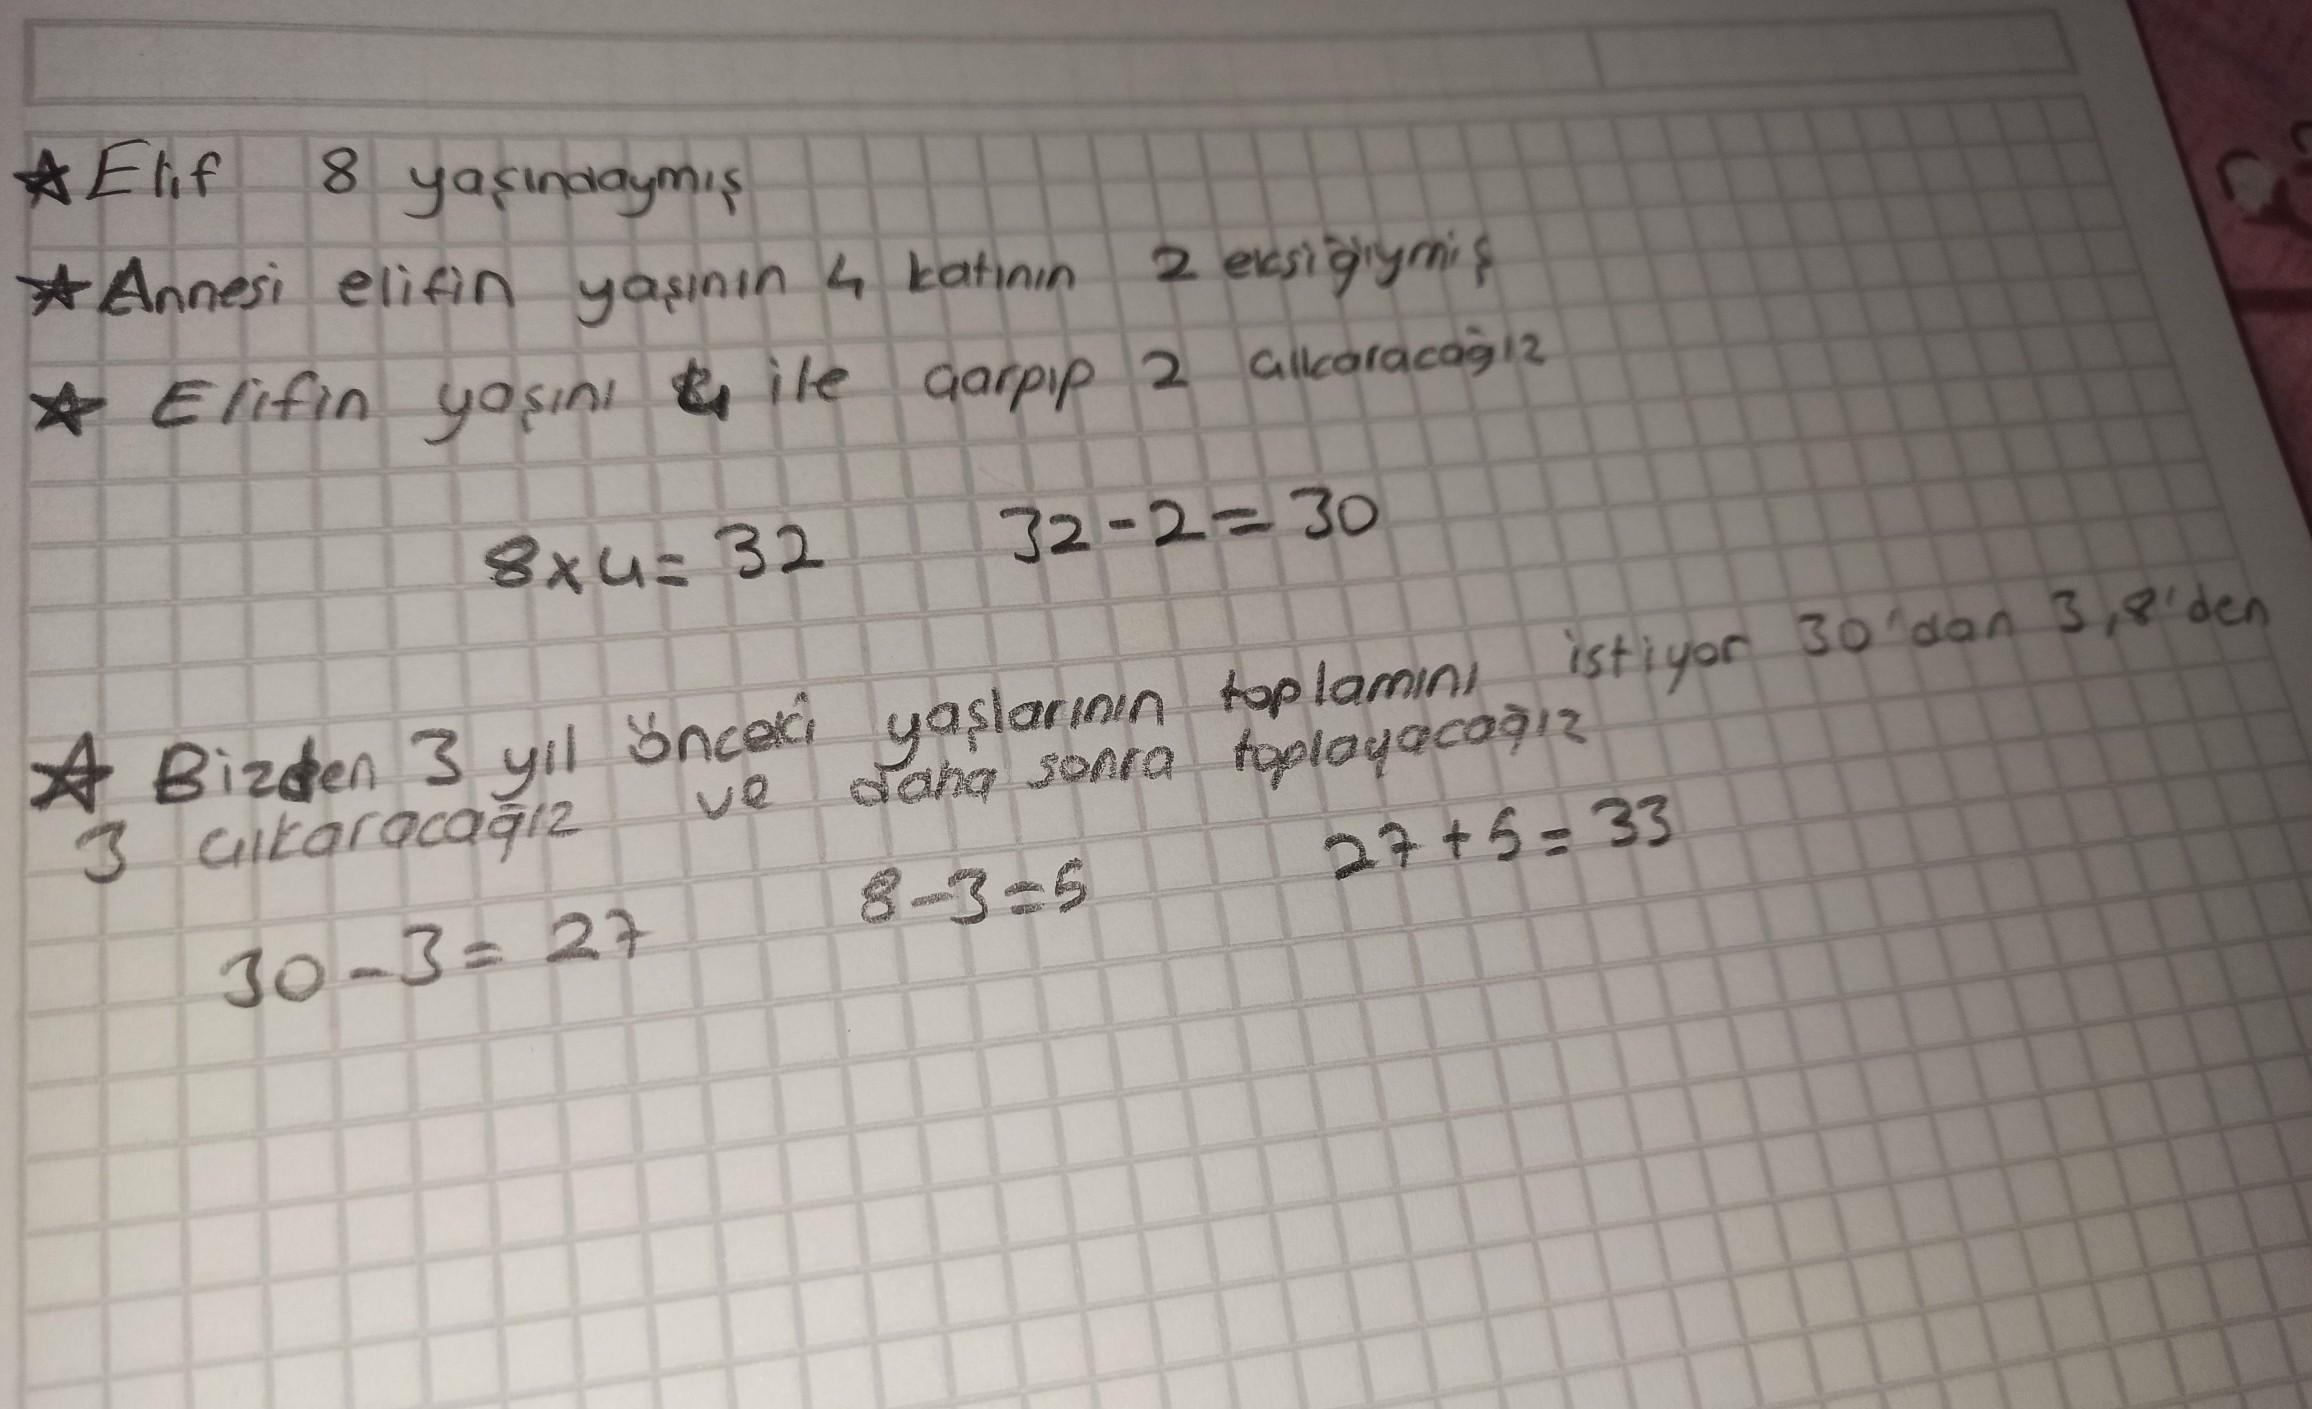 ☆ Elif 8 yaşındaymış
☆ Annesi elifin yaşının 4 katının 2 eksiğiymiş
☆ Elifin yaşını 4 ile çarpıp 2 çıkaracağız
8x4=32 32-2=30
☆ Bizden 3 yıl önceki yaşlarının toplamını istiyor 30'dan 3,8'den
3 çıkaracağız ve daha sonra toplayacağız
30-3=27 8-3=5 27+5=33